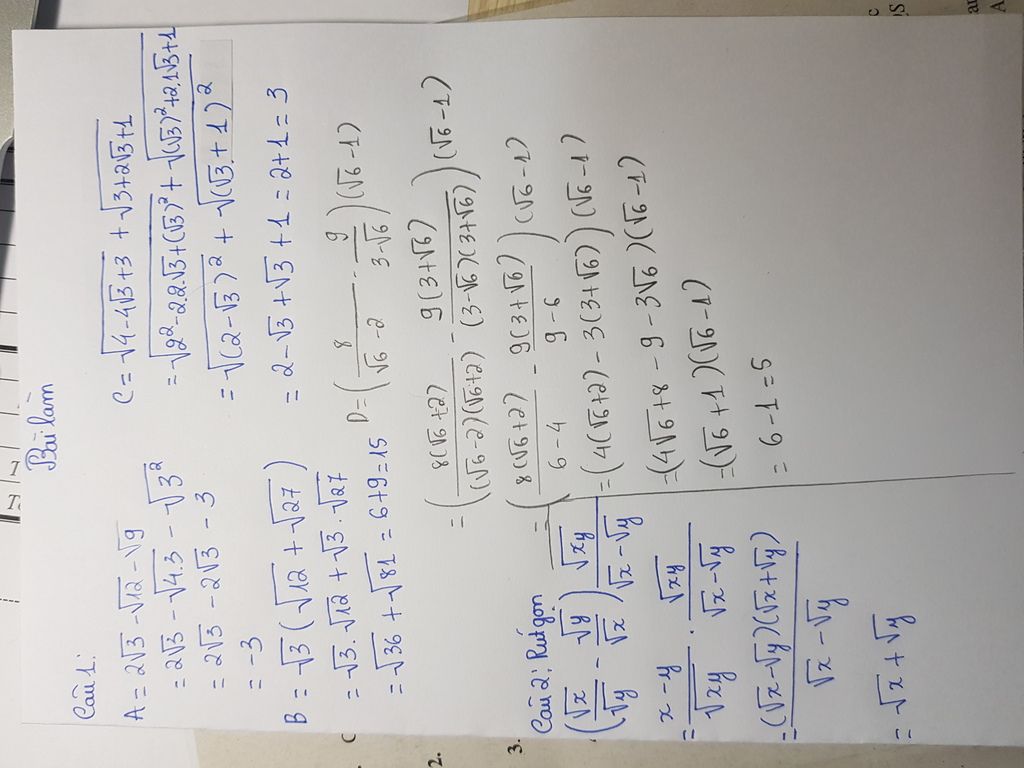 Bài làm
Câu 1:
A = 2√3 - √12 - √9
= 2√3 - √4.3 - √3²
= 2√3 - 2√3 - 3
= -3
B = √3 (√12 + √27)
= √3.√12 + √3.√27
= √36 + √81 = 6+9=15
C = √(4-4√3+3) + √(3+2√3+1)
= √(2²-2.2.√3+(√3)²) + √((√3)²+2.1√3+1)
= √((2-√3)²) + √((√3+1)²)
= 2-√3+√3+1 = 2+1=3
D = (8/(√6-2) - 9/(3-√6))(√6-1)
= (8(√6+2)/((√6-2)(√6+2)) - 9(3+√6)/((3-√6)(3+√6)))(√6-1)
= (8(√6+2)/(6-4) - 9(3+√6)/(9-6))(√6-1)
= (4(√6+2) - 3(3+√6))(√6-1)
=(4√6+8-9-3√6)(√6-1)
=(√6+1)(√6-1)
= 6-1=5
Câu 2: Rút gọn
(√x/√y - √y/√x) √xy/(√x-√y)
= (x-y)/√xy . √xy/(√x-√y)
= (√x-√y)(√x+√y)/(√x-√y)
= √x+√y
2.
3.